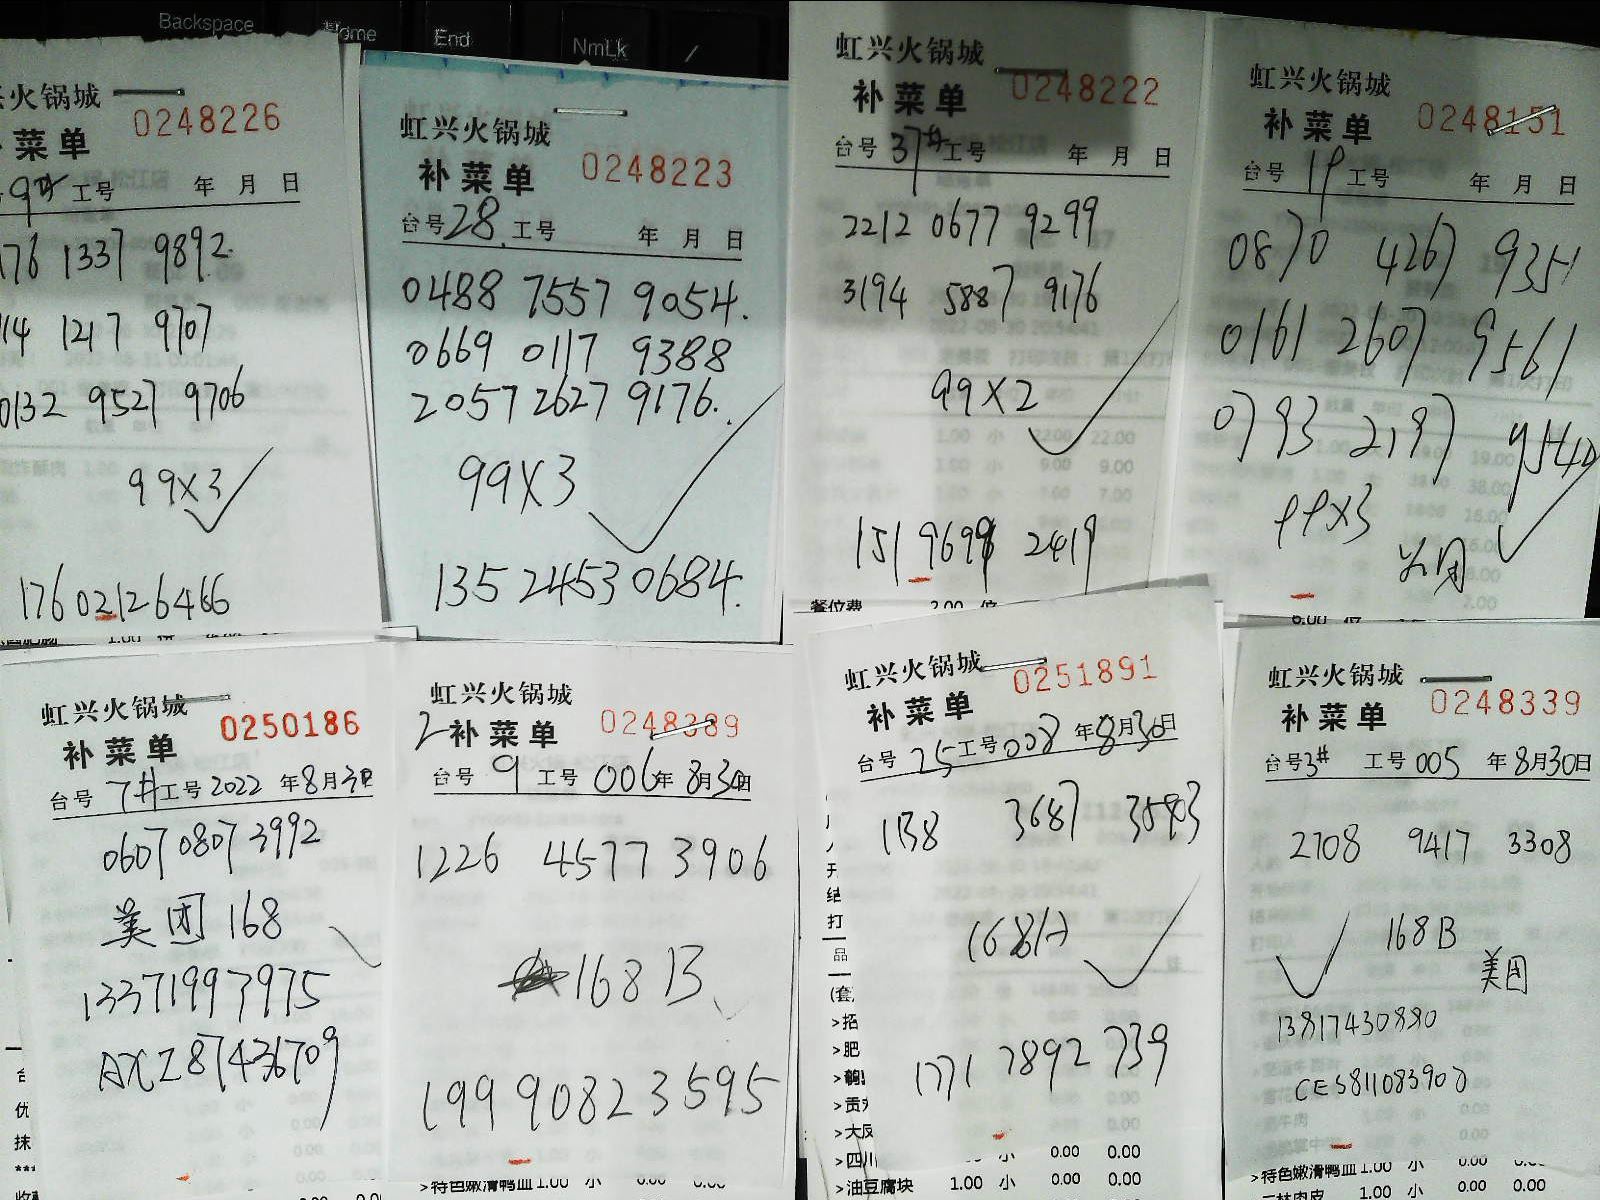 Backspace
Home
End
NmLk
/
兴火锅城
0248226
菜单
9# 工号 年 月 日
176 1337 9892.
114 1217 9707
0132 9527 9706
99X3
17602126466
虹兴火锅城
补菜单
0248223
台号 28. 工号 年 月 日
0488 7557 9054.
0669 0117 9388
2057 2627 9176.
99X3
135 2453 0684.
虹兴火锅城
补菜单
0248222
台号 37# 工号 年 月 日
2212 0677 9299
3194 5887 9176
99X2
151 9699 2419
餐位费 2.00 位
虹兴火锅城
补菜单
0248151
台号 19 工号 年 月 日
0870 4267 9351
0161 2607 9561
0793 2197 9540
99X3
美团
虹兴火锅城
补菜单
0250186
台号 7# 工号 2022 年 8月3日
0607 0807 3992
美团 168
13371997975
AXZ87436709
虹兴火锅城
2-补菜单
0248389
台号 9 工号 006 年 8月30日
1226 4577 3906
168B
199 9082 3595
>特色嫩滑鸭血 1.00 小 0.00 0.00
虹兴火锅城
补菜单
0251891
台号 25 工号 008 年 8月30日
1138 3687 3583
168A
1771 7892 739
0.00 0.00
>四川 小 0.00 0.00
>油豆腐块 1.00 小 0.00 0.00
虹兴火锅城
补菜单
0248339
台号 3# 工号 005 年 8月30日
2708 9417 3308
168B
美团
13817430880
CES811083908
>特色嫩滑鸭血 1.00 小 0.00
1.00 小 0.00 0.00